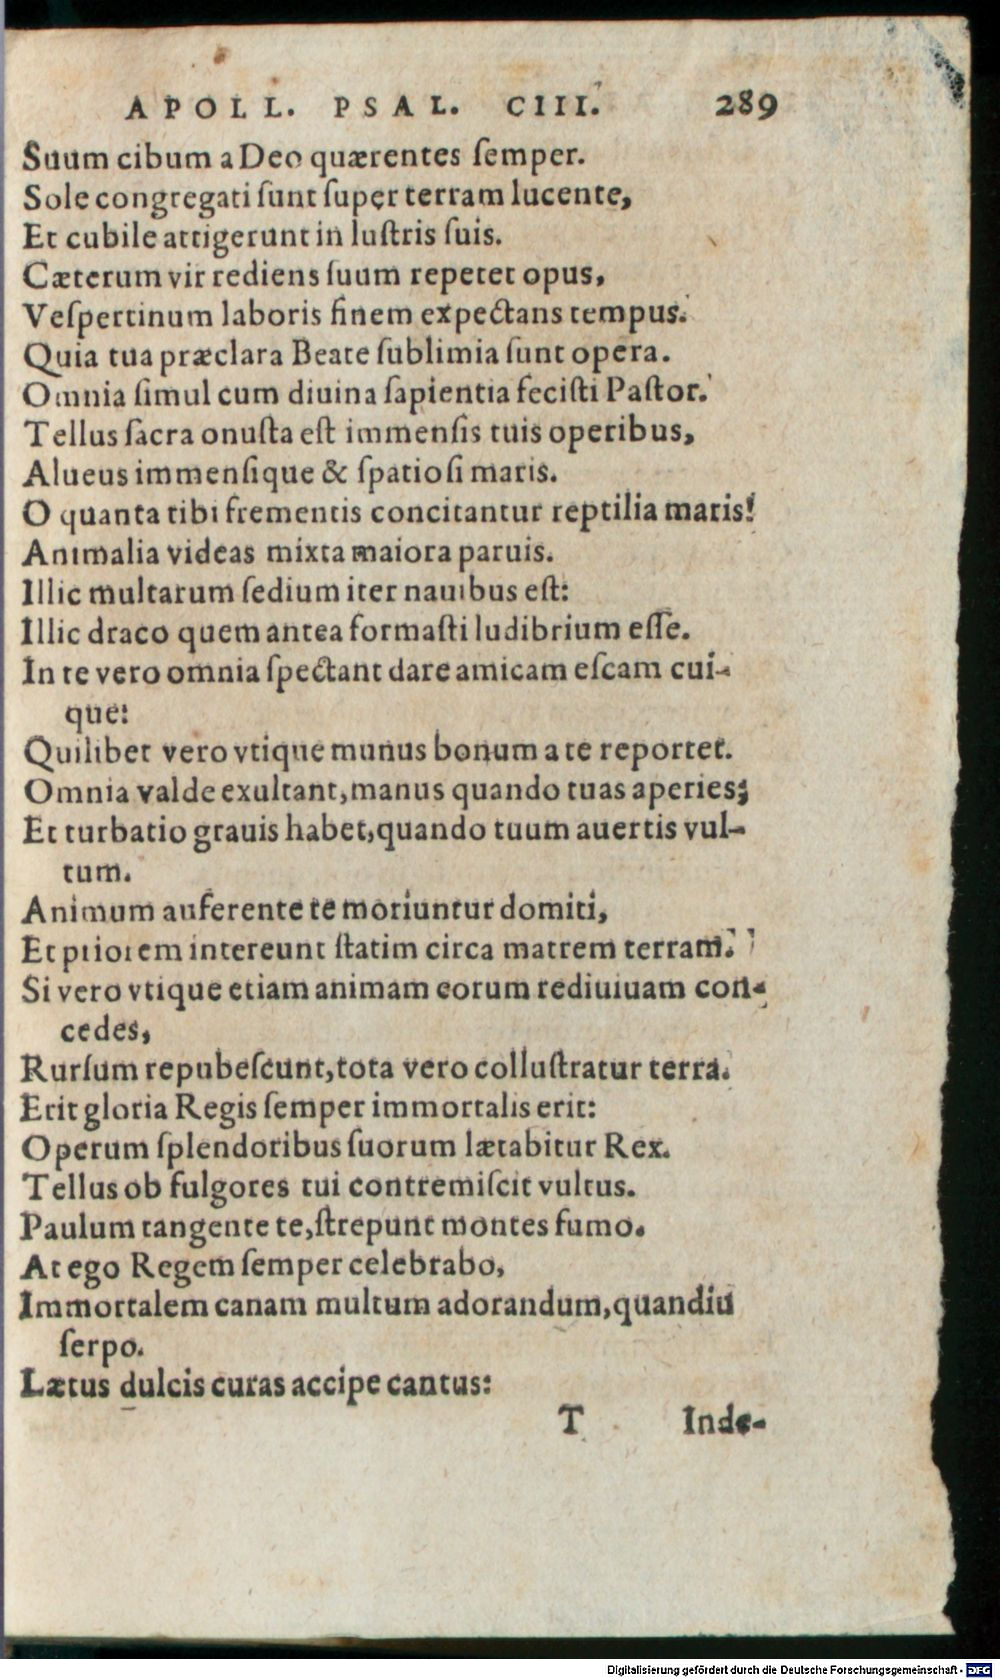 APOLL. PSAL. CIII. 289
Suum cibum a Deo quærentes ſemper.
Sole congregati ſunt ſuper terram lucente,
Et cubile attigerunt in luſtris ſuis.
Cæterum vir rediens ſuum repetet opus,
Veſpertinum laboris finem expectans tempus.
Quia tua præclara Beate ſublimia ſunt opera.
Omnia ſimul cum diuina ſapientia feciſti Paſtor.
Tellus ſacra onuſta eſt immenſis tuis operibus,
Alueus immenſique & ſpatioſi maris.
O quanta tibi frementis concitantur reptilia maris!
Animalia videas mixta maiora paruis.
Illic multarum ſedium iter nauibus eſt:
Illic draco quem antea formaſti ludibrium eſſe.
In te vero omnia ſpectant dare amicam eſcam cui-
que:
Quilibet vero vtique munus bonum a te reportet.
Omnia valde exultant, manus quando tuas aperies;
Et turbatio grauis habet, quando tuum auertis vul-
tum.
Animum auferente te moriuntur domiti,
Et priorem intereunt ſtatim circa matrem terram.
Si vero vtique etiam animam eorum rediuiuam con-
cedes,
Rurſum repubeſcunt, tota vero colluſtratur terra.
Erit gloria Regis ſemper immortalis erit:
Operum ſplendoribus ſuorum lætabitur Rex.
Tellus ob fulgores tui contremiſcit vultus.
Paulum tangente te, ſtrepunt montes fumo.
At ego Regem ſemper celebrabo,
Immortalem canam multum adorandum, quandiu
ſerpo.
Lætus dulcis curas accipe cantus:
T Inde-
Digitalisierung gefördert durch die Deutsche Forschungsgemeinschaft - DFG